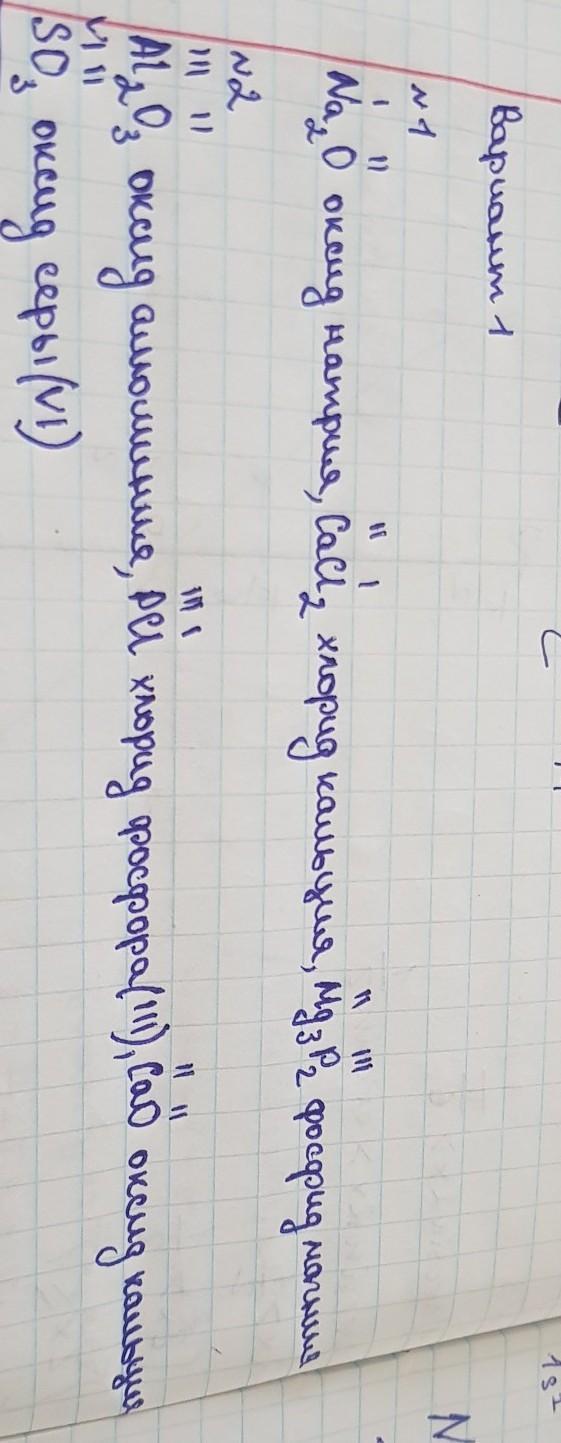 Вариант 1
№1
I II
Na₂O оксид натрия, CaCl₂ хлорид кальция, Mg₃P₂ фосфид магния
№2
III II
Al₂O₃ оксид алюминия, PCl хлорид фосфора (III), CaO оксид кальция
VI II
SO₃ оксид серы (VI)